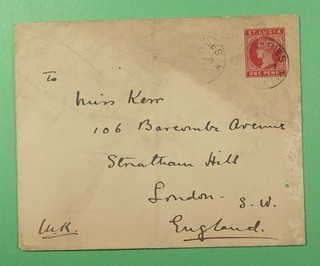 ST. LUCIA
ONE PENNY
To
Miss Kerr
106 Barcombe Avenue
Streatham Hill
London. S.W.
England.
U.K.